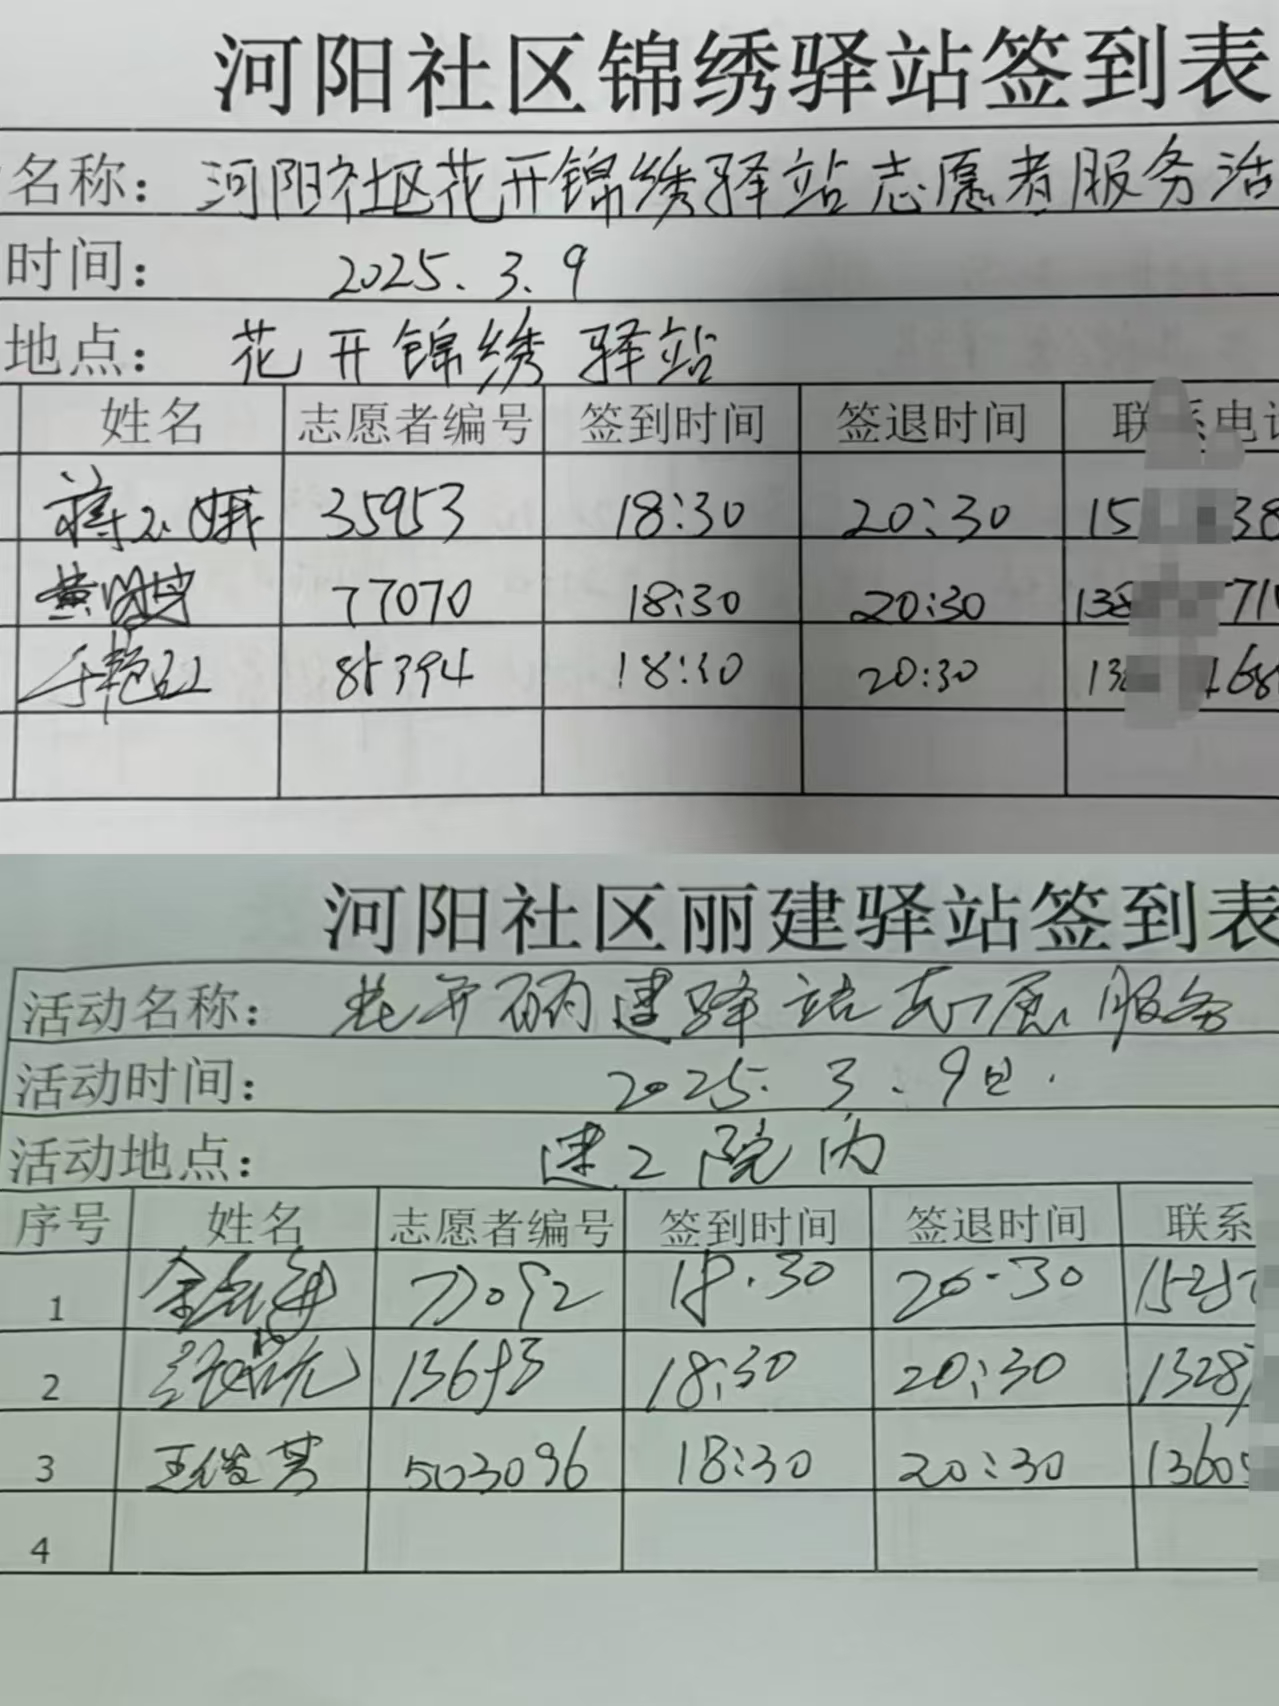 河阳社区锦绣驿站签到表
名称：河阳社区花开锦绣驿站志愿者服务活
时间： 2025.3.9
地点： 花开锦绣驿站
姓名 志愿者编号 签到时间 签退时间 联系电话
35953 18:30 20:30 15 38
77070 18:30 20:30 138 71
85394 18:30 20:30 13 168
河阳社区丽建驿站签到表
活动名称： 花开丽建驿站志愿服务
活动时间： 2025.3.9日.
活动地点： 建工院内
序号 姓名 志愿者编号 签到时间 签退时间 联系
1 77092 18.30 20-30 1525
2 13693 18:30 20:30 1328
3 王俊英 503096 18:30 20:30 1360
4